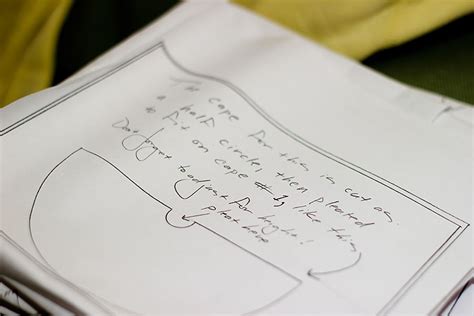 The cape for this is cut on
a half circle, then pleated
to fit on cape #1, like this
Don't forget to adjust for height!
pleat here